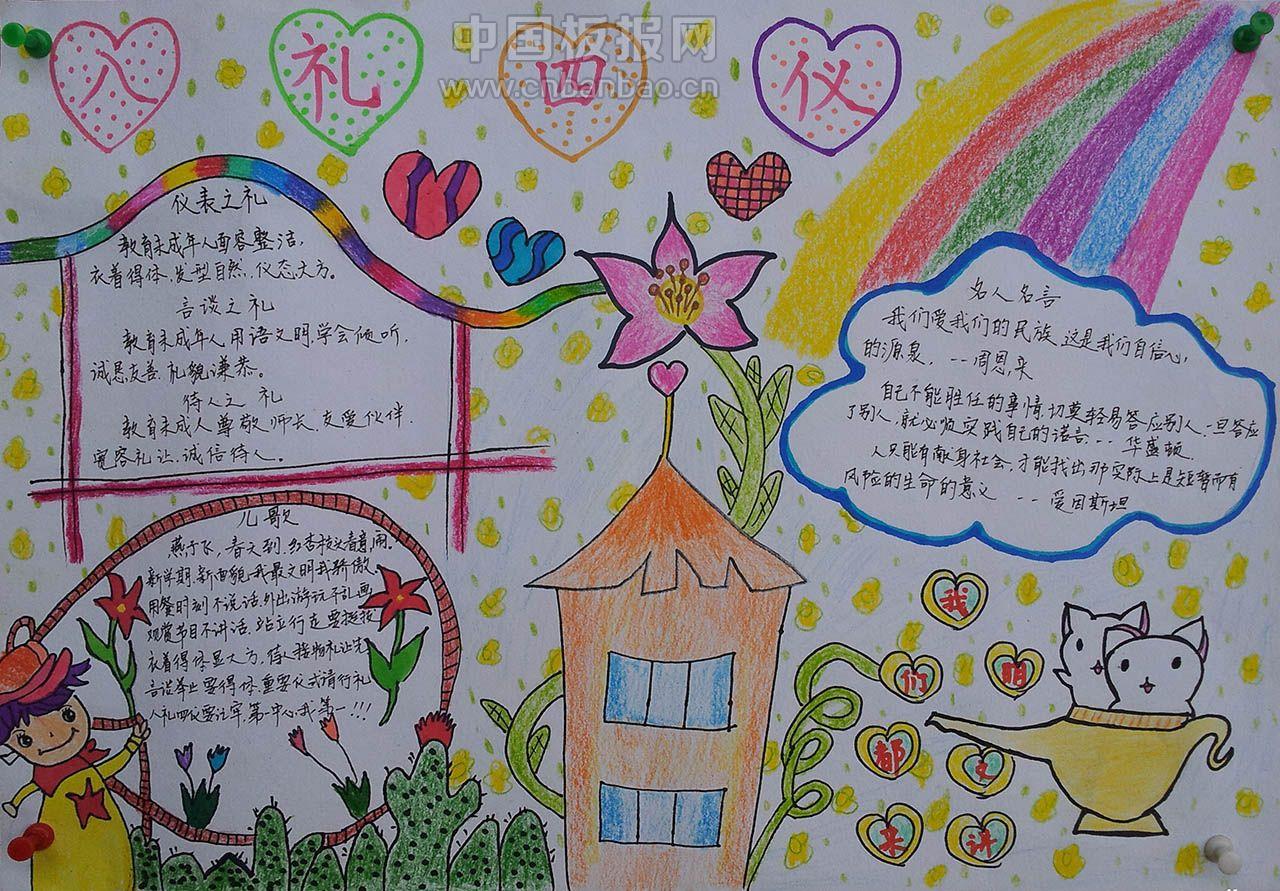 八礼四仪
中国板报网
www.cnbanbao.cn
仪表之礼
教育未成年人面容整洁,
衣着得体,发型自然,仪态大方。
言谈之礼
教育未成年人用语文明,学会倾听,
诚恳友善,礼貌谦恭。
待人之礼
教育未成人尊敬师长,友爱伙伴,
宽容礼让,诚信待人。
名人名言
我们爱我们的民族,这是我们自信心,
的源泉, --周恩来
自己不能胜任的事情,切莫轻易答应别人,一旦答应
了别人,就必须实践自己的诺言。--华盛顿
人只能有献身社会,才能找出那实际上是短暂而有
风险的生命的意义 --爱因斯坦
儿歌
燕子飞,春天到,
新学期,新面貌,我最文明我骄傲
用餐时刻不说话,外出游玩不乱画
观赏节目不讲话,站立行走要挺拔
衣着得体显大方,待人接物礼让先
言谈举止要得体,重要仪式请行礼
八礼四仪要记牢,第一中心我第一!!!
我们
明
都文
来讲